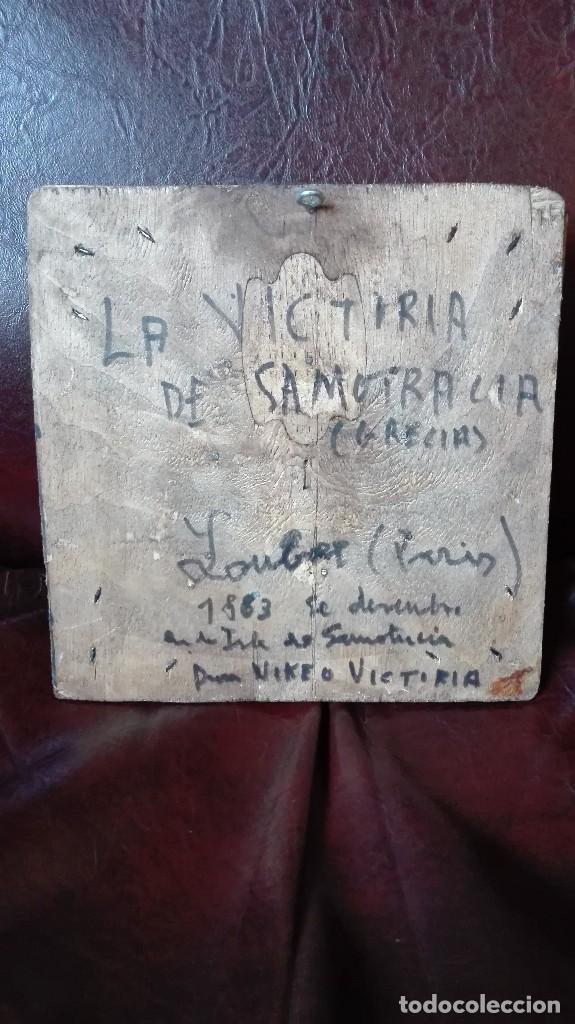 LA VICTIRIA
DE SAMOTRACIA
(GRECIA)
Loubre (Paris)
1863 se descubre
en la Isla de Samotracia
NIKE O VICTIRIA
todocoleccion
todocoleccion.net